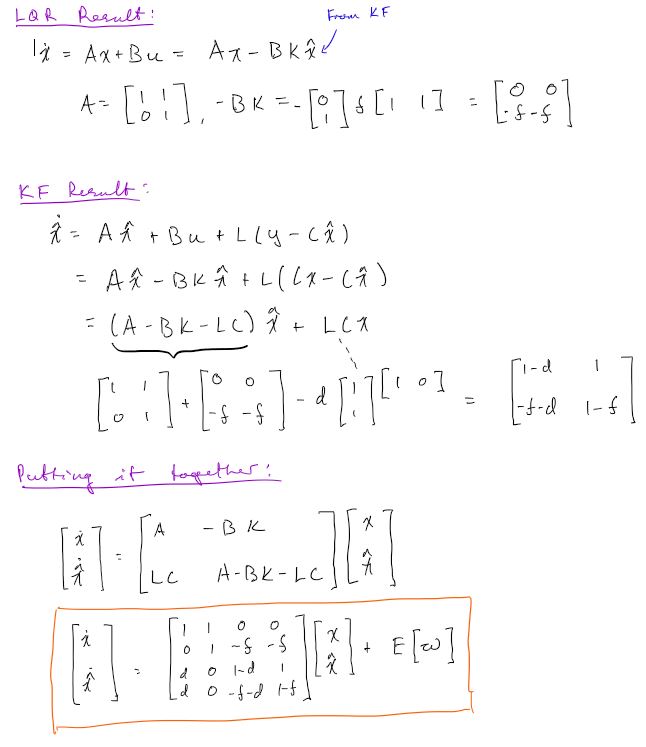 LQR Result:
From KF
ẋ = Ax + Bu = Ax - BKx̂
A = [1 1; 0 1], -BK = -[0; 1] f [1 1] = [0 0; -f -f]
KF Result:
x̂̇ = Ax̂ + Bu + L(y - Cx̂)
= Ax̂ - BKx̂ + L(Cx - Cx̂)
= (A - BK - LC) x̂ + LCx
[1 1; 0 1] + [0 0; -f -f] - d [1; 1] [1 0] = [1-d 1; -f-d 1-f]
Putting it together:
[ẋ; x̂̇] = [A -BK; LC A-BK-LC] [x; x̂]
[ẋ; x̂̇] = [1 1 0 0; 0 1 -f -f; d 0 1-d 1; d 0 -f-d 1-f] [x; x̂] + E[w]